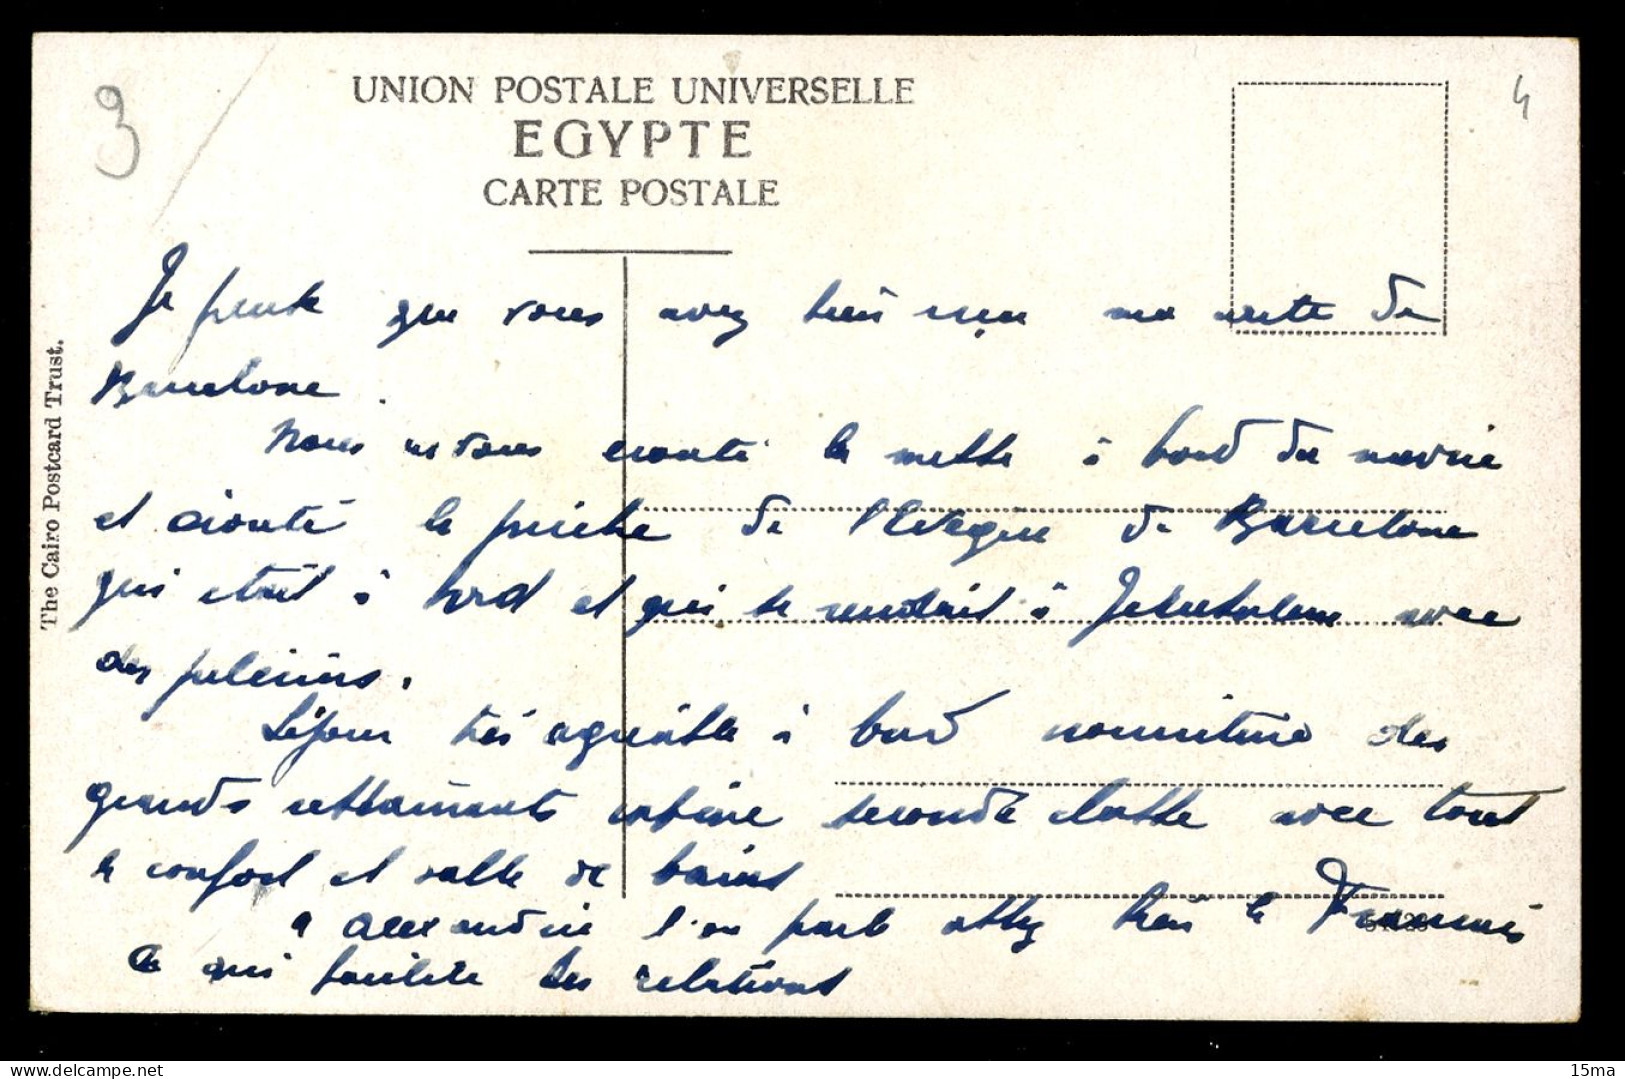 3
4
UNION POSTALE UNIVERSELLE
EGYPTE
CARTE POSTALE
The Cairo Postcard Trust.
Je pense que vous avez bien reçu ma carte de
Barcelone.
Nous avons écouté la messe à bord du navire
et écouté le prêche de l'Evêque de Barcelone
qui était à bord et qui se rendait à Jerusalem avec
des pèlerins.
Séjour très agréable à bord nourriture des
grands restaurants cabine seconde classe avec tout
le confort et salle de bains
a alexandrie l'on parle assez bien le Français
Ce qui facilite les relations
15ma